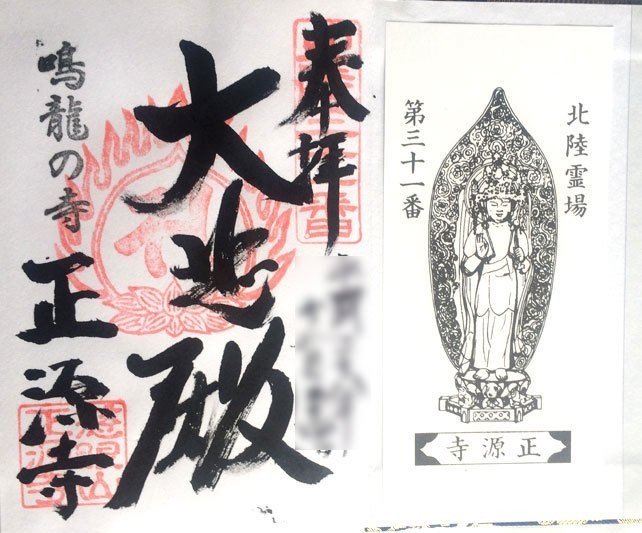 奉拝
大悲殿
鳴龍の寺
正源寺
北陸霊場
第三十一番
正源寺